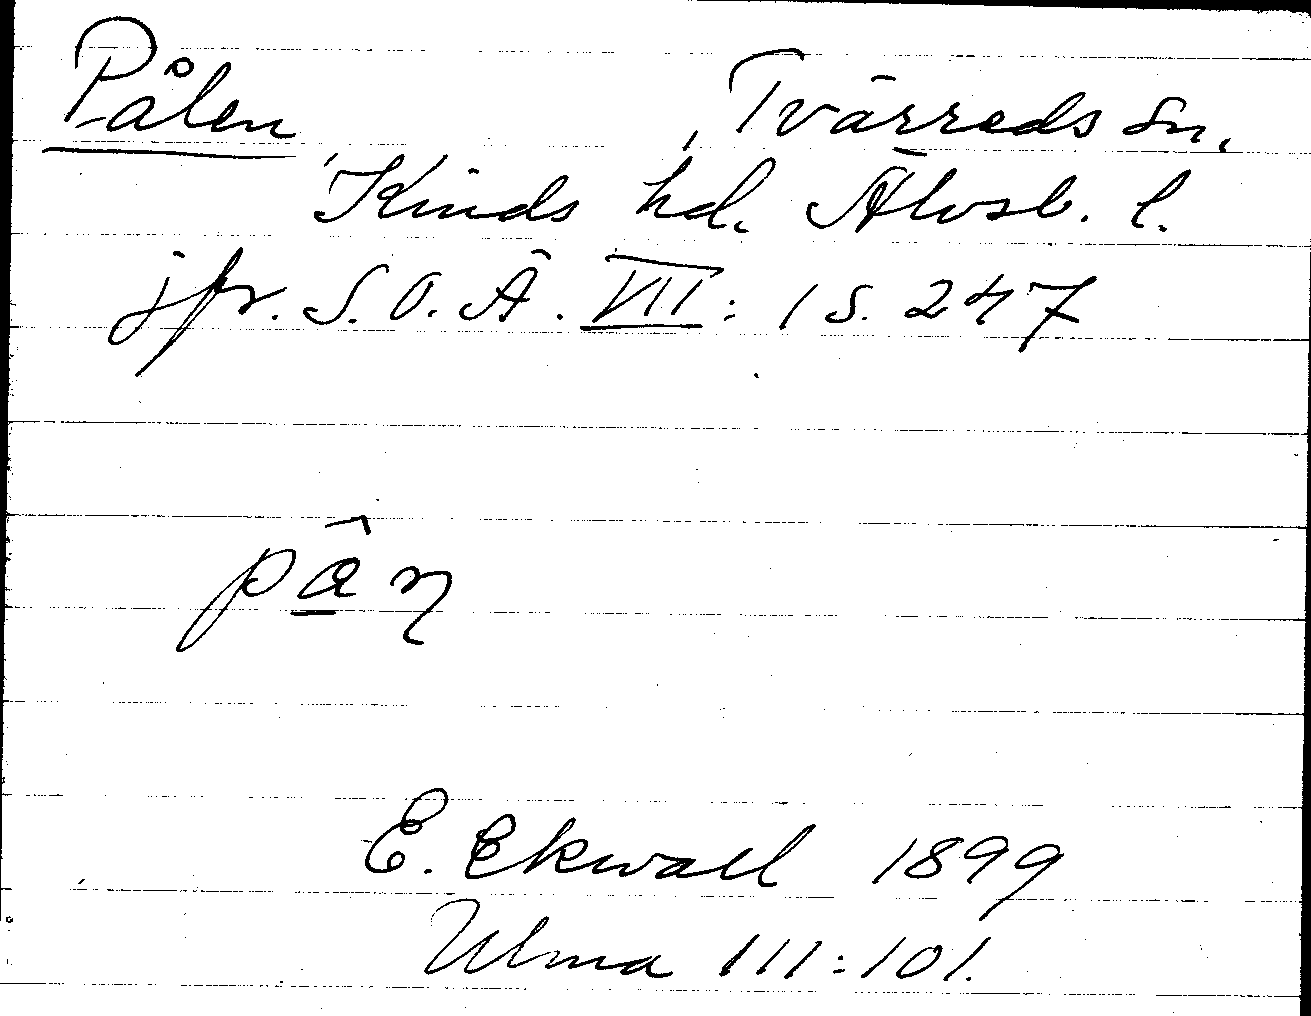 Pålen , Tvärreds sn,
Kinds hd. Älvsb. l.
jfr. S.O.Ä. VII: 1 s. 247
E. Ekwall 1899
Ulma 111:101.